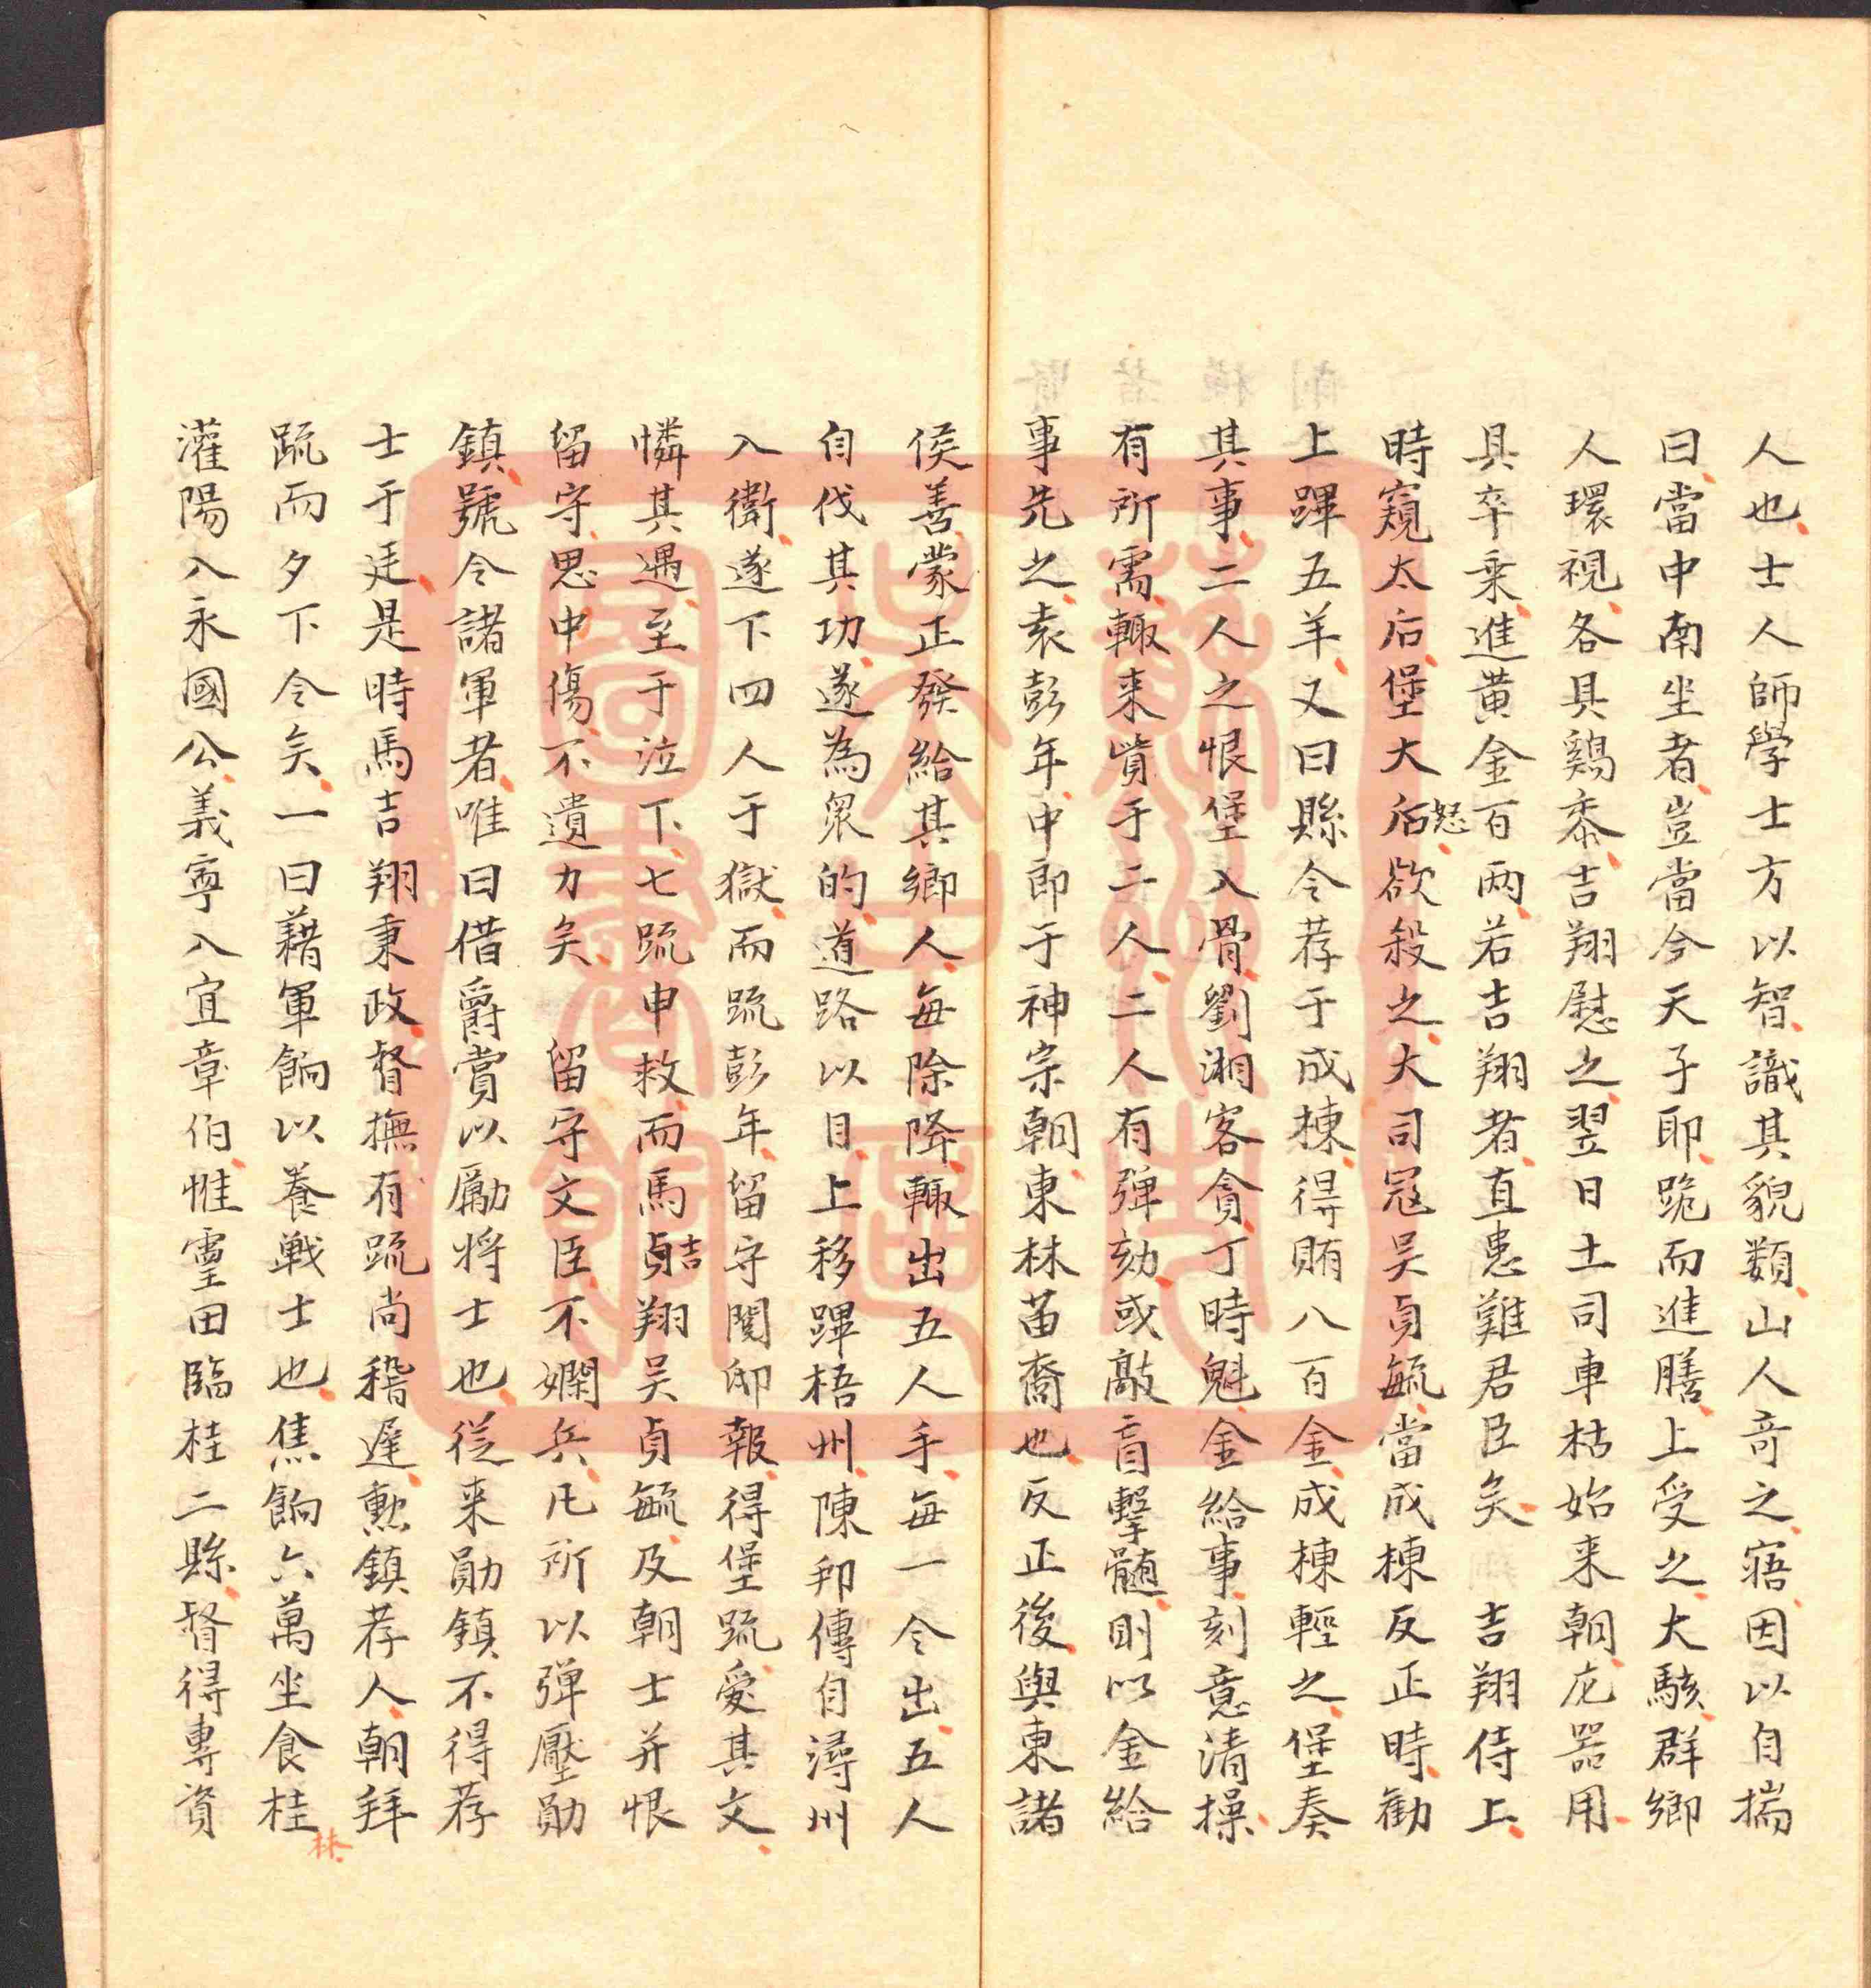 人也士人師學士方以智識其貌類山人竒之寤因以自揣
曰當中南坐者豈當今天子耶跪而進膳上受之大駭群鄉
人環視各具鷄黍吉翔慰之翌日土司車枯始来朝庀器用
具卒乗進黄金百两若吉翔者直患難君臣矣　吉翔侍上
時窺太后堡大后怒欲殺之大司冦吴貞毓當成棟反正時勸
上蹕五羊又曰縣令荐于成棟得賄八百金成棟輕之堡奏
其事二人之恨堡入骨劉湘客貪丁時魁金給事刻意清操
有所需輒来貲于二人二人有弾劾或敲盲擊髄則以金給
事先之袁彭年中郎于神宗朝東林苗裔也反正後與東諸
侯善蒙正發給其鄉人每除降輒出五人手每一令出五人
自伐其功遂為衆的道路以目上移蹕梧州陳邦傳自潯州
入衛遂下四人于獄而䟽彭年留守閲邸報得堡䟽愛其文
憐其遇至于泣下七䟽申救而馬貞吉翔吴貞毓及朝士并恨
留守思中傷不遺力矣　留守文臣不嫻兵凡所以弾壓勛
鎮號令諸軍者唯曰借爵賞以勵将士也從来勛鎮不得荐
士于廷是時馬吉翔秉政督撫有䟽尚稽遲勲鎮荐人朝拜
䟽而夕下令矣一曰藉軍餉以養戰士也焦餉六萬坐食桂林
灌陽入永國公義寧入宜章伯惟靈田臨桂二縣督得專資
圖書館